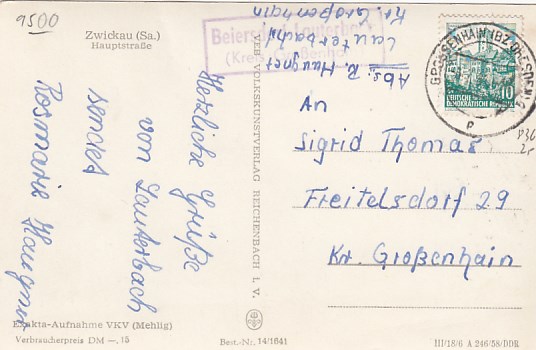 9500
Zwickau (Sa.)
Hauptstraße
Herzliche Grüße
von Lauterbach
sendet
Rosmarie
Exakta-Aufnahme VKV (Mehlig)
Verbraucherpreis DM —,15
VEB VOLKSKUNSTVERLAG REICHENBACH I. V.
Best.-Nr. 14/1641
Abs. R.
Lauterbach
Kr. Großenhain
(Kreis Großenhain)
GROSSENHAIN (BZ. DRESDEN)
10
DEUTSCHE
DEMOKRATISCHE REPUBLIK
An
Sigrid Thomas
Freitelsdorf 29
Kr. Großenhain
III/18/6 A 246/58/DDR